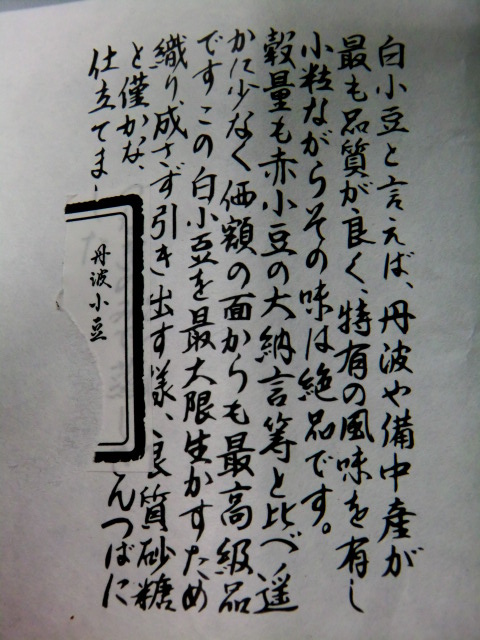 白小豆と言えば、丹波や備中産が
最も品質が良く、特有の風味を有し
小粒ながらその味は絶品です。
穀量も赤小豆の大納言等と比べ、遥
かに少なく価額の面からも最高級品
です この白小豆を最大限生かすため
織り成さず引き出す様、良質砂糖
と僅かな、
んつばに
仕立てま
丹波小豆